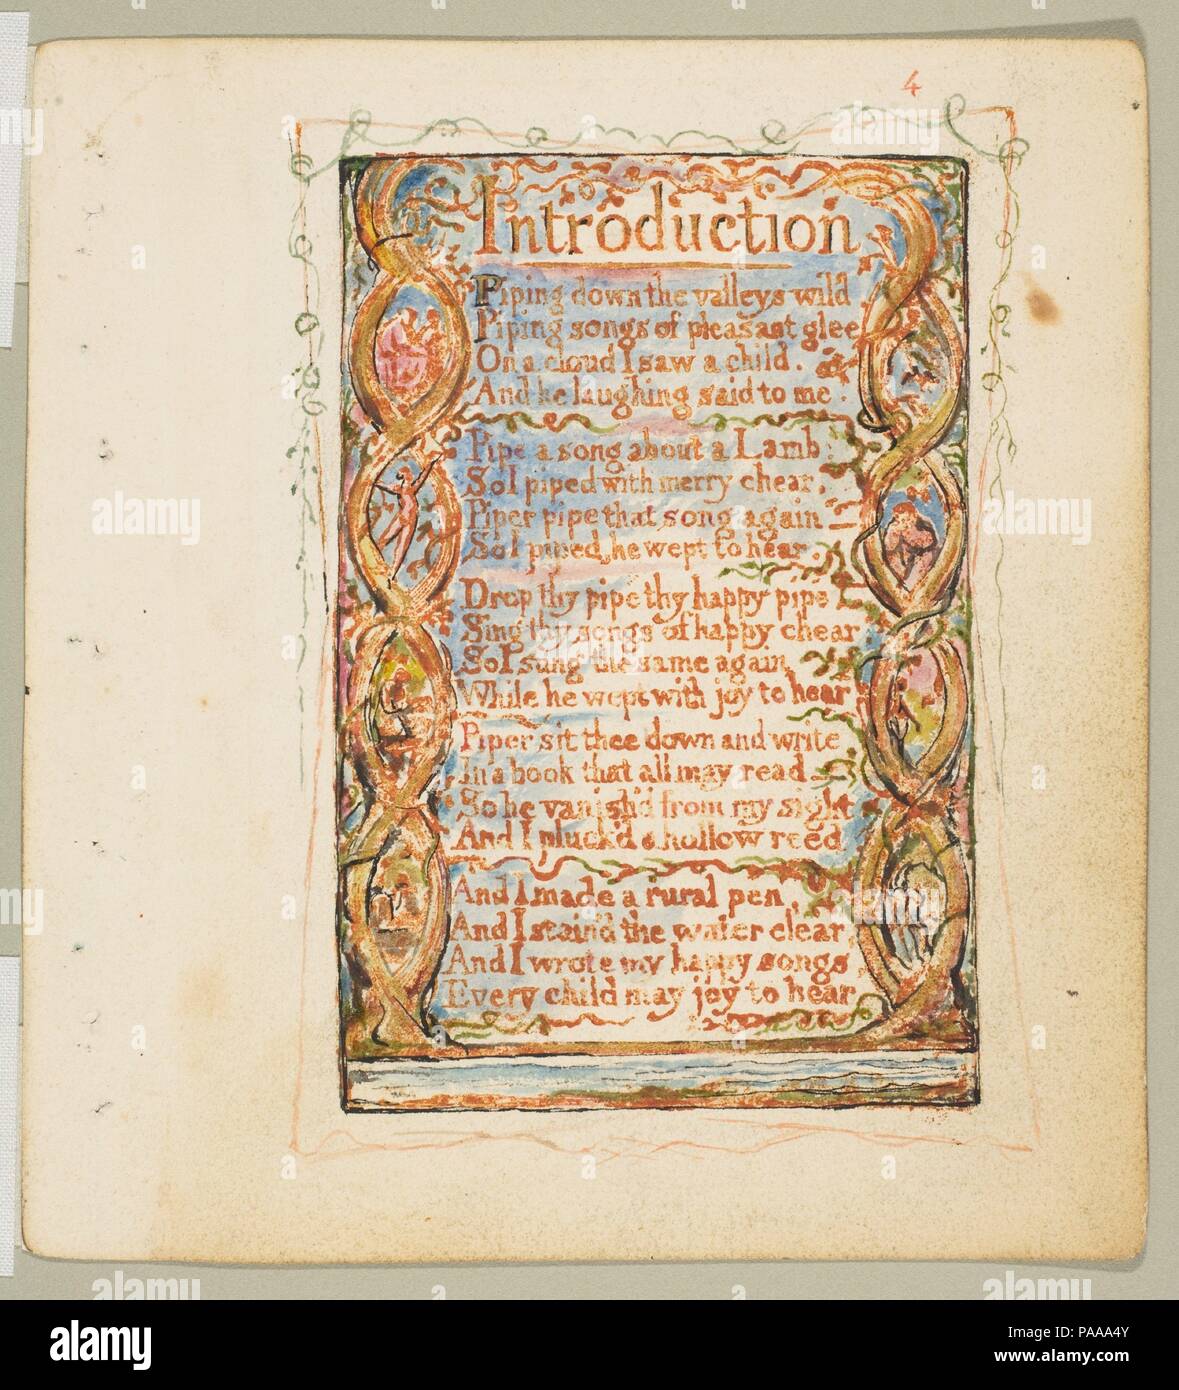 4
Introduction
Piping down the valleys wild
Piping songs of pleasant glee
On a cloud I saw a child.
And he laughing said to me.
Pipe a song about a Lamb:
So I piped with merry chear,
Piper pipe that song again
So I piped, he wept to hear.
Drop thy pipe thy happy pipe
Sing thy songs of happy chear
So I sung the same again
While he wept with joy to hear
Piper sit thee down and write
In a book that all may read
So he vanish'd from my sight
And I pluck'd a hollow reed
And I made a rural pen,
And I stain'd the water clear
And I wrote my happy songs,
Every child may joy to hear
alamy
a
Image ID: PAAA4Y
www.alamy.com